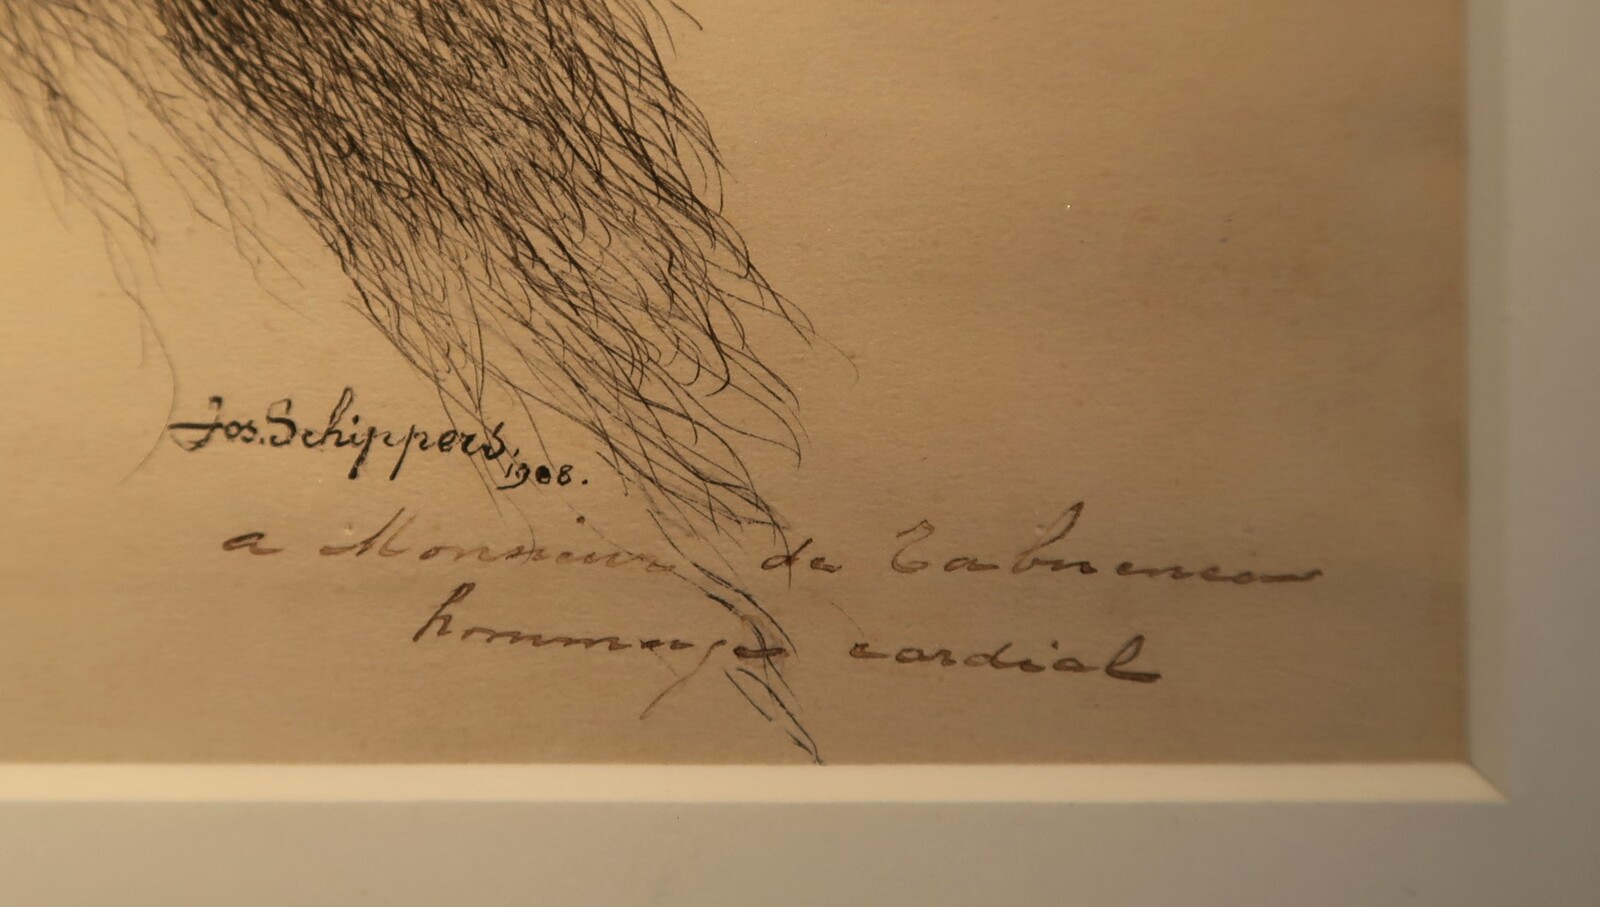 Jos. Schippers.
1908.
a Monsieur de
hommage cordial